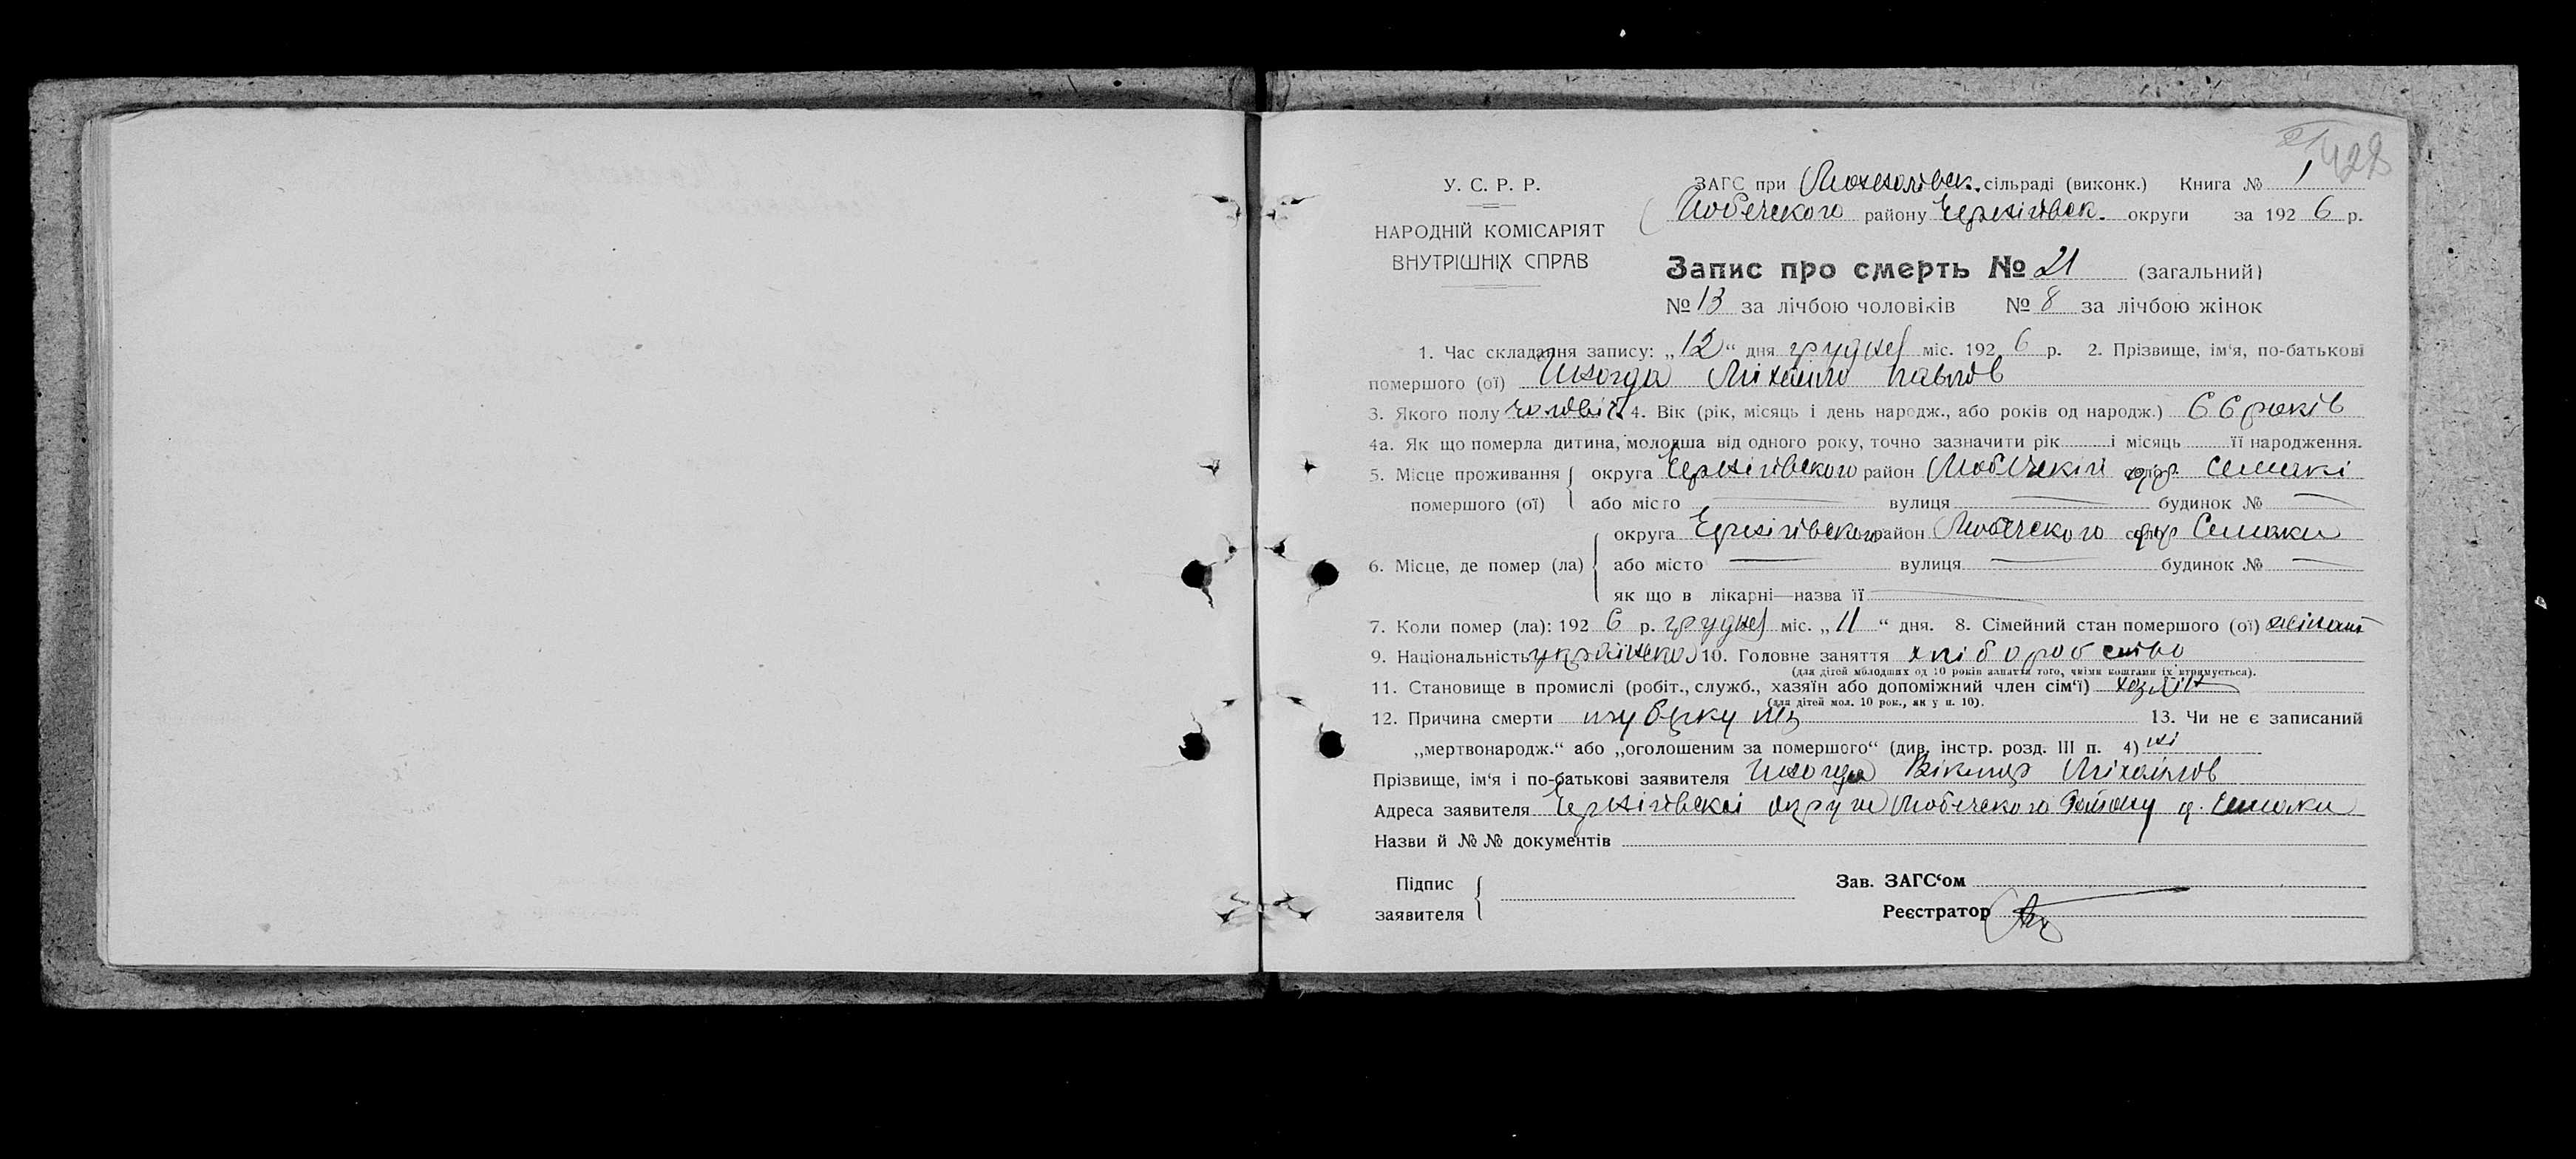 428
У. С. Р. Р.
НАРОДНІЙ КОМІСАРІЯТ
ВНУТРІШНІХ СПРАВ
ЗАГС при сільраді (виконк.) Книга № 1
Любечского району Чернігівск. округи за 1926 р.
Запис про смерть № 21 (загальний)
№ 13 за лічбою чоловіків № 8 за лічбою жінок
1. Час складання запису: „12“ дня грудня міс. 1926 р. 2. Прізвище, ім‘я, по-батькові
помершого (ої) Міхайло Павлов
3. Якого полу чоловіч. 4. Вік (рік, місяць і день народж., або років од народж.) 66 років
4а. Як що померла дитина, молодша від одного року, точно зазначити рік і місяць її народження.
5. Місце проживання округа Чернігівского район Любечскій Семакі
помершого (ої) або місто — вулиця — будинок № —
округа Чернігівского район Любечского Семаки
6. Місце, де помер (ла) або місто — вулиця — будинок № —
як що в лікарні—назва її —
7. Коли помер (ла): 1926 р. грудня міс. „11“ дня. 8. Сімейний стан помершого (ої)
9. Національність українска 10. Головне заняття хліборобство
(для дітей молодших од 10 років заняття того, чиїми коштами їх втримується).
11. Становище в промислі (робіт., служб., хазяїн або допоміжний член сім‘ї) хазяїн
(для дітей мол. 10 рок., як у п. 10).
12. Причина смерти туберкульз 13. Чи не є записаний
„мертвонародж.“ або „оголошеним за помершого“ (див. інстр. розд. III п. 4) ні
Прізвище, ім‘я і по-батькові заявителя Віктор Міхайлов
Адреса заявителя Чернігівскої округи Любечского Району д. Семаки
Назви й №№ документів
Підпис
заявителя
Зав. ЗАГС‘ом
Реєстратор